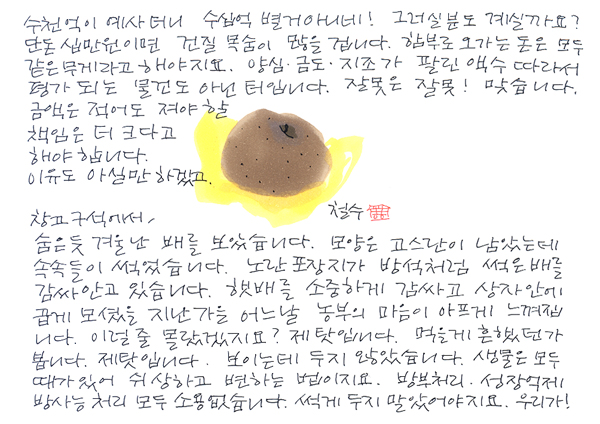 수천억이 예사더니 수십억 별거아니네! 그러실분도 계실까요?
단돈 십만원이면 건질 목숨이 많을 겁니다. 함부로 오가는 돈은 모두
같은무게라고 해야지요. 양심·금도·지조가 팔린 액수 따라서
평가 되는 물건도 아닌 터입니다. 잘못은 잘못! 맞습니다.
금액은 적어도 져야 할
책임은 더 크다고
해야 합니다.
이유도 아실만 하겠고.
철수
창고구석에서,
숨은듯 겨울난 배를 보았습니다. 모양은 고스란이 남았는데
속속들이 썩었습니다. 노란포장지가 방석처럼 썩은배를
감싸안고 있습니다. 햇배를 소중하게 감싸고 상자안에
곱게 모셨을 지난가을 어느날 농부의 마음이 아프게 느껴집
니다. 이럴줄 몰랐겠지요? 제탓입니다. 먹을게 흔했던가
봅니다. 제탓입니다. 보이는데 두지 않았습니다. 생물은 모두
때가있어 쉬 상하고 변하는 법이지요. 방부처리·성장억제
방사능처리 모두 소용없습니다. 썩게 두지 말았어야지요. 우리가!